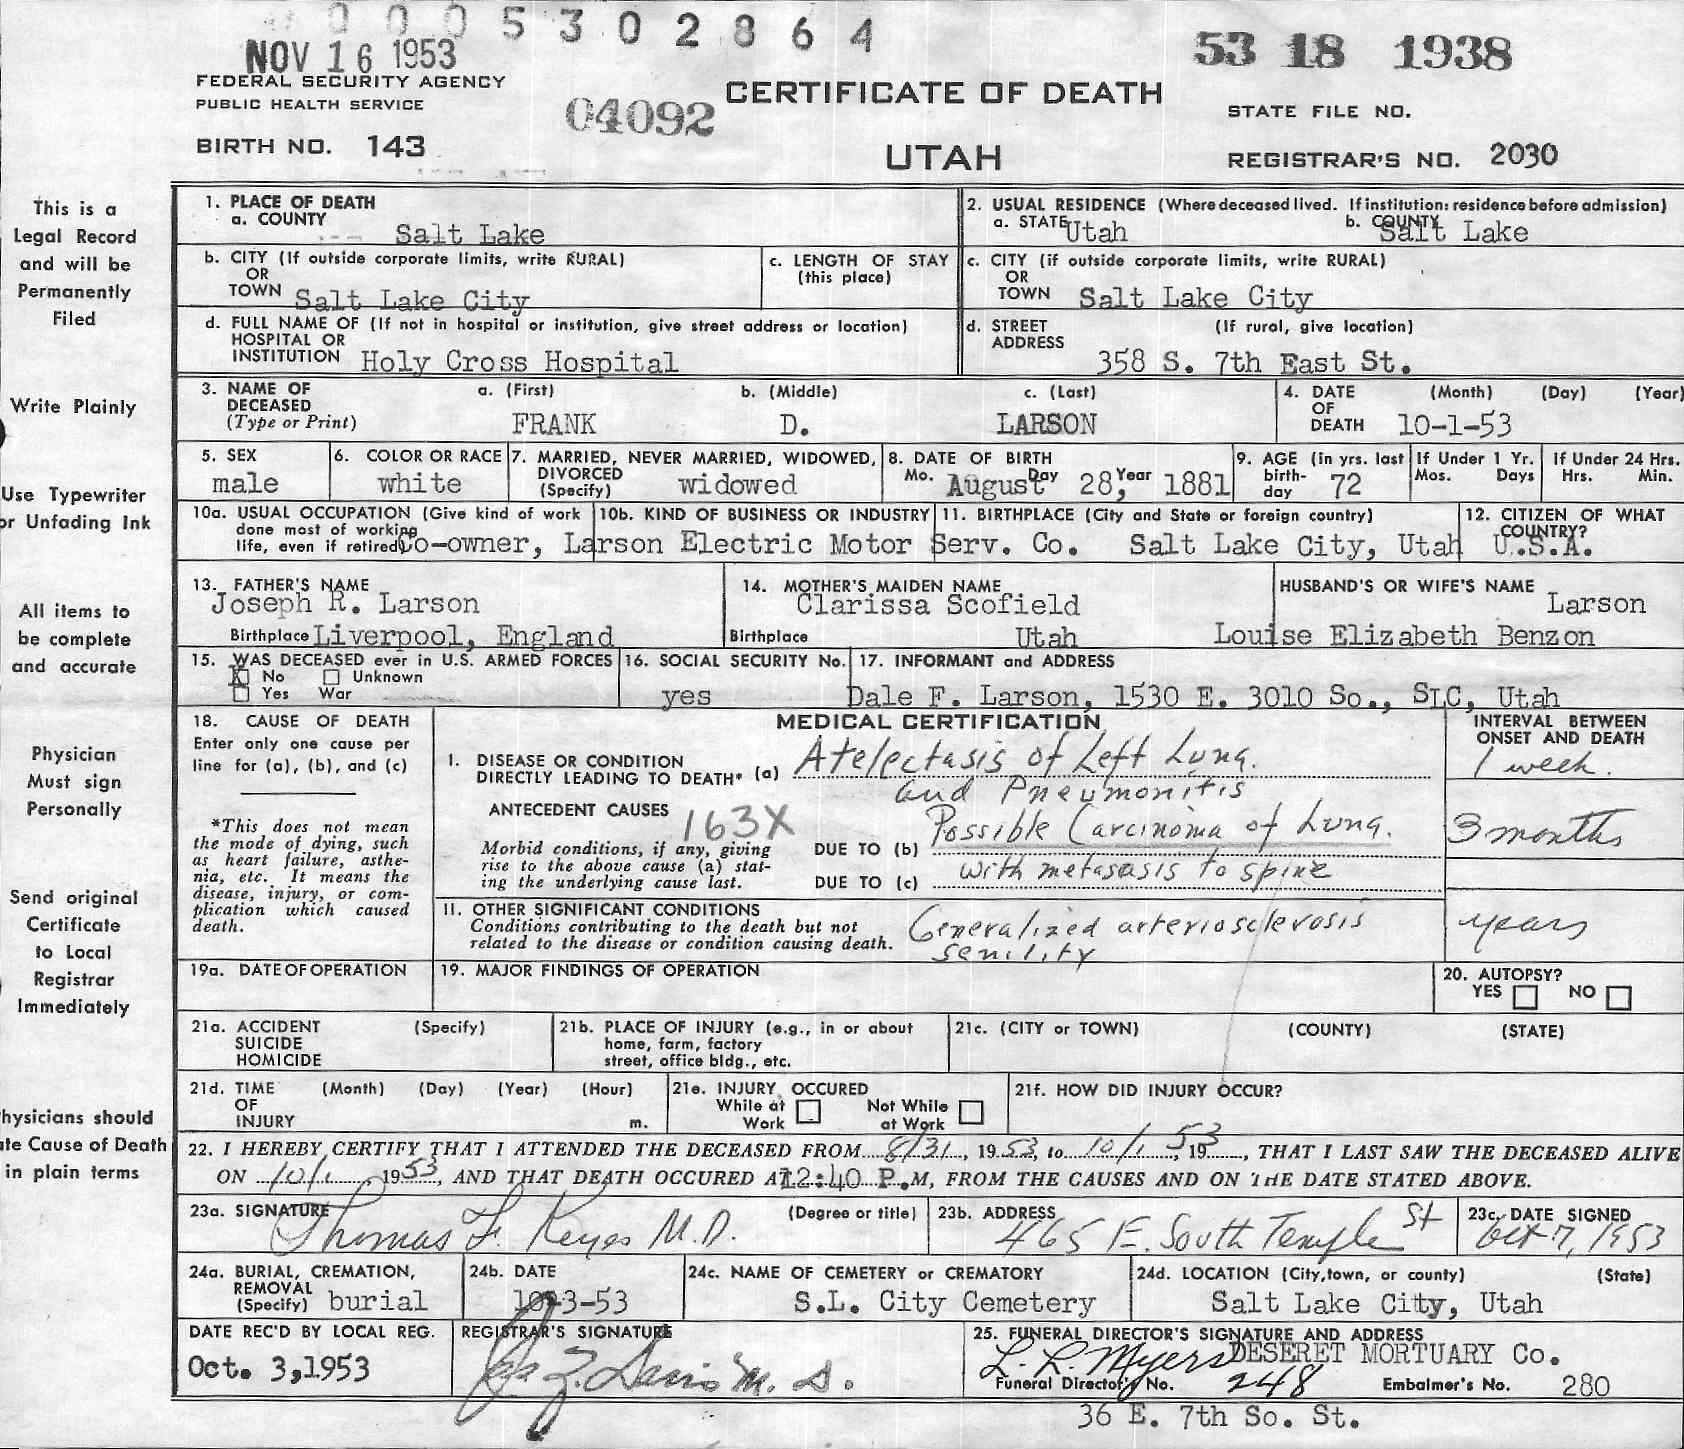 0005302864
NOV 16 1953
53 18 1938
FEDERAL SECURITY AGENCY
PUBLIC HEALTH SERVICE
04092
CERTIFICATE OF DEATH
STATE FILE NO.
BIRTH NO. 143
UTAH
REGISTRAR'S NO. 2030
This is a
Legal Record
and will be
Permanently
Filed
Write Plainly
Use Typewriter
or Unfading Ink
All items to
be complete
and accurate
Physician
Must sign
Personally
Send original
Certificate
to Local
Registrar
Immediately
hysicians should
te Cause of Death
in plain terms
1. PLACE OF DEATH
a. COUNTY Salt Lake
2. USUAL RESIDENCE (Where deceased lived. If institution: residence before admission)
a. STATE Utah b. COUNTY Salt Lake
b. CITY (If outside corporate limits, write RURAL)
OR
TOWN Salt Lake City
c. LENGTH OF STAY
(this place)
c. CITY (if outside corporate limits, write RURAL)
OR
TOWN Salt Lake City
d. FULL NAME OF (If not in hospital or institution, give street address or location)
HOSPITAL OR
INSTITUTION Holy Cross Hospital
d. STREET (If rural, give location)
ADDRESS
358 S. 7th East St.
3. NAME OF a. (First) b. (Middle) c. (Last)
DECEASED
(Type or Print) FRANK D. LARSON
4. DATE (Month) (Day) (Year)
OF
DEATH 10-1-53
5. SEX
male
6. COLOR OR RACE
white
7. MARRIED, NEVER MARRIED, WIDOWED,
DIVORCED
(Specify) widowed
8. DATE OF BIRTH
Mo. Day Year
August 28, 1881
9. AGE (in yrs. last
birth-
day 72
If Under 1 Yr.
Mos. Days
If Under 24 Hrs.
Hrs. Min.
10a. USUAL OCCUPATION (Give kind of work
done most of working
life, even if retired)
10b. KIND OF BUSINESS OR INDUSTRY
Co-owner, Larson Electric Motor Serv. Co.
11. BIRTHPLACE (City and State or foreign country)
Salt Lake City, Utah
12. CITIZEN OF WHAT
COUNTRY?
U.S.A.
13. FATHER'S NAME
Joseph R. Larson
Birthplace Liverpool, England
14. MOTHER'S MAIDEN NAME
Clarissa Scofield
Birthplace Utah
HUSBAND'S OR WIFE'S NAME
Larson
Louise Elizabeth Benzon
15. WAS DECEASED ever in U.S. ARMED FORCES
X No Unknown
Yes War
16. SOCIAL SECURITY No.
yes
17. INFORMANT and ADDRESS
Dale F. Larson, 1530 E. 3010 So., SLC, Utah
18. CAUSE OF DEATH
Enter only one cause per
line for (a), (b), and (c)
*This does not mean
the mode of dying, such
as heart failure, asthe-
nia, etc. It means the
disease, injury, or com-
plication which caused
death.
MEDICAL CERTIFICATION
INTERVAL BETWEEN
ONSET AND DEATH
I. DISEASE OR CONDITION
DIRECTLY LEADING TO DEATH* (a) Atelectasis of Left Lung.
and Pneumonitis
1 week.
ANTECEDENT CAUSES 163X
Morbid conditions, if any, giving
rise to the above cause (a) stat-
ing the underlying cause last.
DUE TO (b) Possible Carcinoma of Lung.
3 months
DUE TO (c) with metasasis to spine
II. OTHER SIGNIFICANT CONDITIONS
Conditions contributing to the death but not
related to the disease or condition causing death.
Generalized arteriosclerosis
senility
years
19a. DATE OF OPERATION
19. MAJOR FINDINGS OF OPERATION
20. AUTOPSY?
YES NO
21a. ACCIDENT (Specify)
SUICIDE
HOMICIDE
21b. PLACE OF INJURY (e.g., in or about
home, farm, factory
street, office bldg., etc.
21c. (CITY or TOWN) (COUNTY) (STATE)
21d. TIME (Month) (Day) (Year) (Hour)
OF
INJURY m.
21e. INJURY OCCURED
While at Not While
Work at Work
21f. HOW DID INJURY OCCUR?
22. I HEREBY CERTIFY THAT I ATTENDED THE DECEASED FROM 8/31, 1953, to 10/1, 1953, THAT I LAST SAW THE DECEASED ALIVE
ON 10/1, 1953, AND THAT DEATH OCCURED AT 12:40 P.M, FROM THE CAUSES AND ON THE DATE STATED ABOVE.
23a. SIGNATURE (Degree or title)
Thomas F. Keyes M.D.
23b. ADDRESS
465 E. South Temple St
23c. DATE SIGNED
Oct 7, 1953
24a. BURIAL, CREMATION,
REMOVAL
(Specify) burial
24b. DATE
10-3-53
24c. NAME OF CEMETERY or CREMATORY
S.L. City Cemetery
24d. LOCATION (City, town, or county) (State)
Salt Lake City, Utah
DATE REC'D BY LOCAL REG.
Oct. 3, 1953
REGISTRAR'S SIGNATURE
M. D.
25. FUNERAL DIRECTOR'S SIGNATURE AND ADDRESS
L. L. Myers DESERET MORTUARY Co.
Funeral Director's No. 248 Embalmer's No. 280
36 E. 7th So. St.